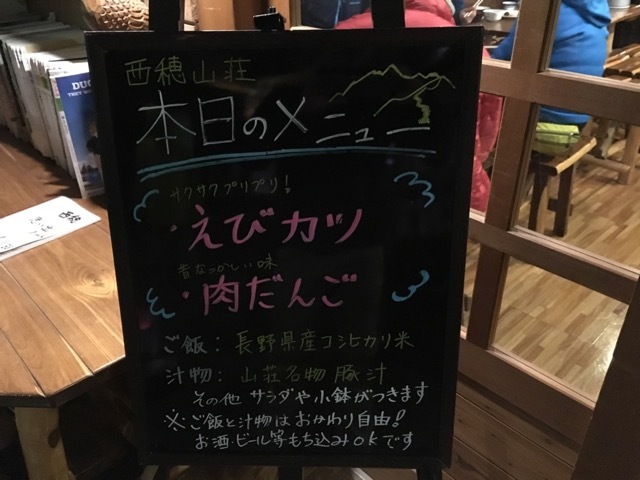 西穂山荘
本日のメニュー
サクサクプリプリ!
・えびカツ
昔なつかしい味
・肉だんご
ご飯:長野県産コシヒカリ米
汁物:山荘名物豚汁
その他 サラダや小鉢がつきます
※ご飯と汁物はおかわり自由!
お酒・ビール等もち込みOKです